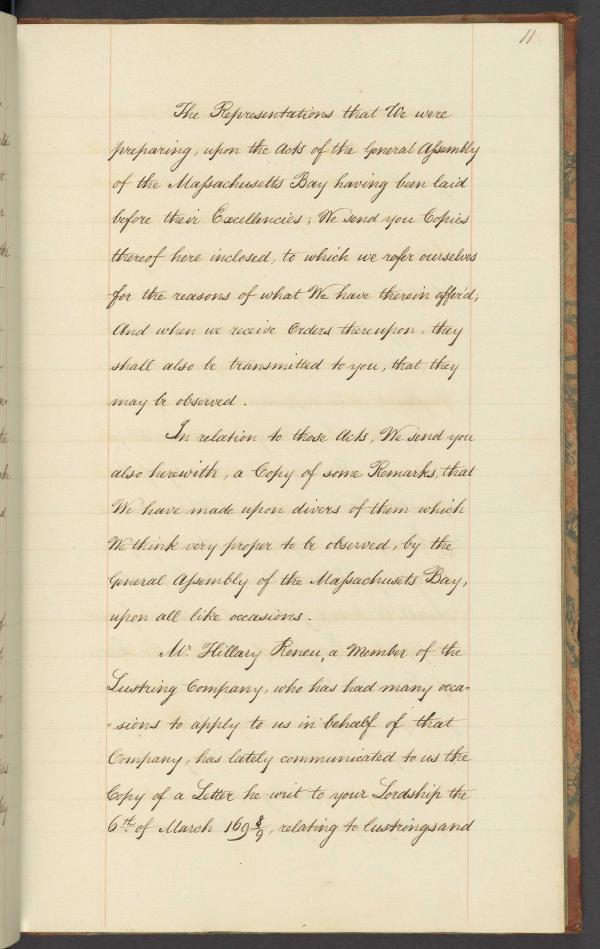 11
The Representations that We were
preparing, upon the Acts of the General Assembly
of the Massachusetts Bay having been laid
before their Excellencies; We send you Copies
thereof here inclosed, to which we refer ourselves
for the reasons of what We have therein offer'd;
And when we receive Orders thereupon, they
shall also be transmitted to you, that they
may be observed.
In relation to those Acts, We send you
also herewith, a Copy of some Remarks, that
We have made upon divers of them which
We think very proper to be observed, by the
General Assembly of the Massachusets Bay,
upon all like occasions.
Mr. Hillary Reneu, a Member of the
Lustring Company, who has had many occa-
-sions to apply to us in behalf of that
Company, has lately communicated to us the
Copy of a Letter he writ to your Lordship the
6th of March 169 8/9, relating to lustrings and